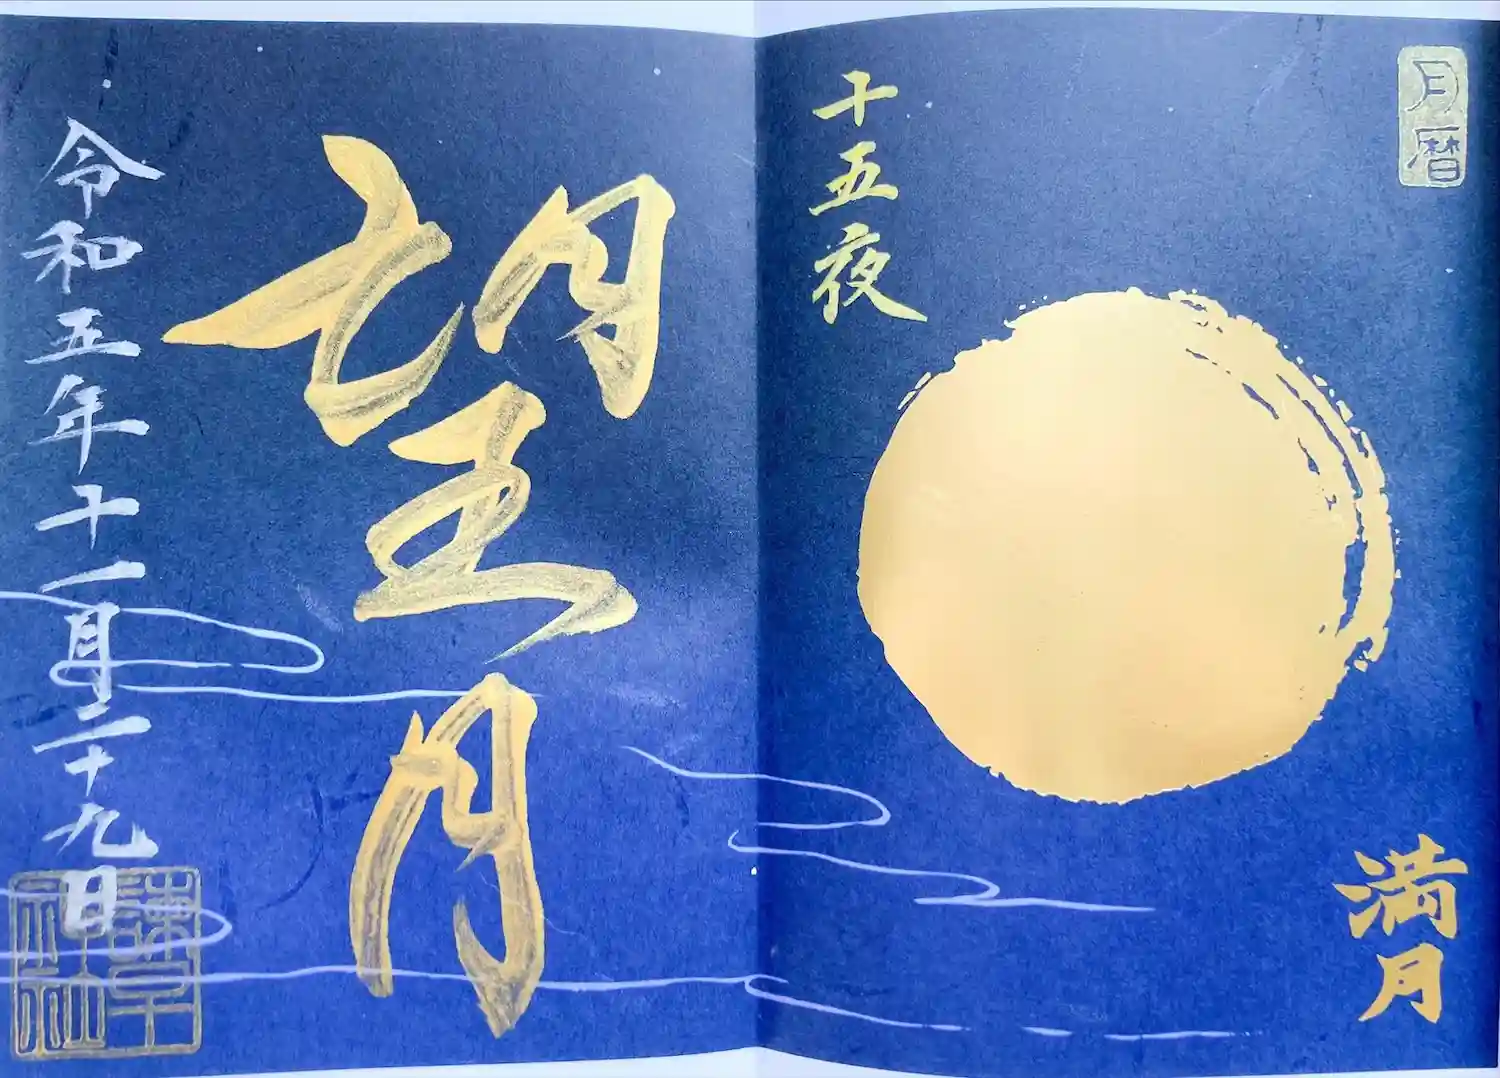 月暦
十五夜
満月
望月
令和五年十一月二十九日
諫早
神社